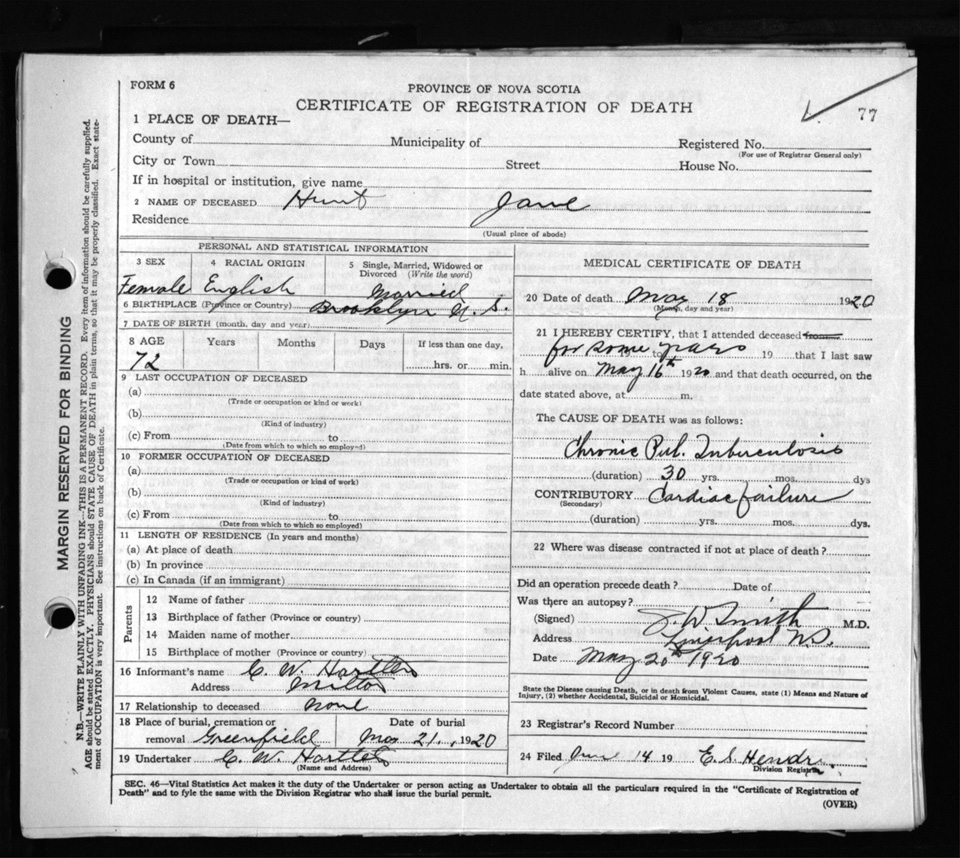 FORM 6
PROVINCE OF NOVA SCOTIA
CERTIFICATE OF REGISTRATION OF DEATH
77
1 PLACE OF DEATH—
County of Municipality of Registered No.
(For use of Registrar General only)
City or Town Street House No.
If in hospital or institution, give name
2 NAME OF DECEASED Hunt Jane
Residence
(Usual place of abode)
PERSONAL AND STATISTICAL INFORMATION
3 SEX 4 RACIAL ORIGIN 5 Single, Married, Widowed or Divorced (Write the word)
Female English Married
6 BIRTHPLACE (Province or Country) Brooklyn N.S.
7 DATE OF BIRTH (month, day and year)
8 AGE Years Months Days If less than one day,
72 hrs. or min.
9 LAST OCCUPATION OF DECEASED
(a)
(Trade or occupation or kind or work)
(b)
(Kind of industry)
(c) From to
(Date from which to which so employed)
10 FORMER OCCUPATION OF DECEASED
(a)
(Trade or occupation or kind of work)
(b)
(Kind of industry)
(c) From to
(Date from which to which so employed)
11 LENGTH OF RESIDENCE (In years and months)
(a) At place of death
(b) In province
(c) In Canada (if an immigrant)
Parents
12 Name of father
13 Birthplace of father (Province or country)
14 Maiden name of mother
15 Birthplace of mother (Province or country)
16 Informant's name C. W. Hartlen
Address Milton
17 Relationship to deceased none
18 Place of burial, cremation or Date of burial
removal Greenfield May 21, 1920
19 Undertaker C. W. Hartlen
(Name and Address)
MEDICAL CERTIFICATE OF DEATH
20 Date of death May 18 1920
(Month, day and year)
21 I HEREBY CERTIFY, that I attended deceased from
for some years 19 to 19 that I last saw
h alive on May 16th 1920 and that death occurred, on the
date stated above, at m.
The CAUSE OF DEATH was as follows:
Chronic Pul. Tuberculosis
(duration) 30 yrs. mos. dys
CONTRIBUTORY Cardiac failure
(Secondary)
(duration) yrs. mos. dys.
22 Where was disease contracted if not at place of death?
Did an operation precede death? Date of
Was there an autopsy?
(Signed) J. W. Smith M.D.
Address Liverpool N.S.
Date May 20th 1920
State the Disease causing Death, or in death from Violent Causes, state (1) Means and Nature of
Injury, (2) whether Accidental, Suicidal or Homicidal.
23 Registrar's Record Number
24 Filed June 14 19 E. S. Hendry
Division Registrar
SEC. 46—Vital Statistics Act makes it the duty of the Undertaker or person acting as Undertaker to obtain all the particulars required in the "Certificate of Registration of
Death" and to fyle the same with the Division Registrar who shall issue the burial permit.
(OVER)
MARGIN RESERVED FOR BINDING
N.B.—WRITE PLAINLY WITH UNFADING INK—THIS IS A PERMANENT RECORD. Every item of information should be carefully supplied.
AGE should be stated EXACTLY. PHYSICIANS should STATE CAUSE OF DEATH in plain terms, so that it may be properly classified. Exact state-
ment of OCCUPATION is very important. See instructions on back of Certificate.